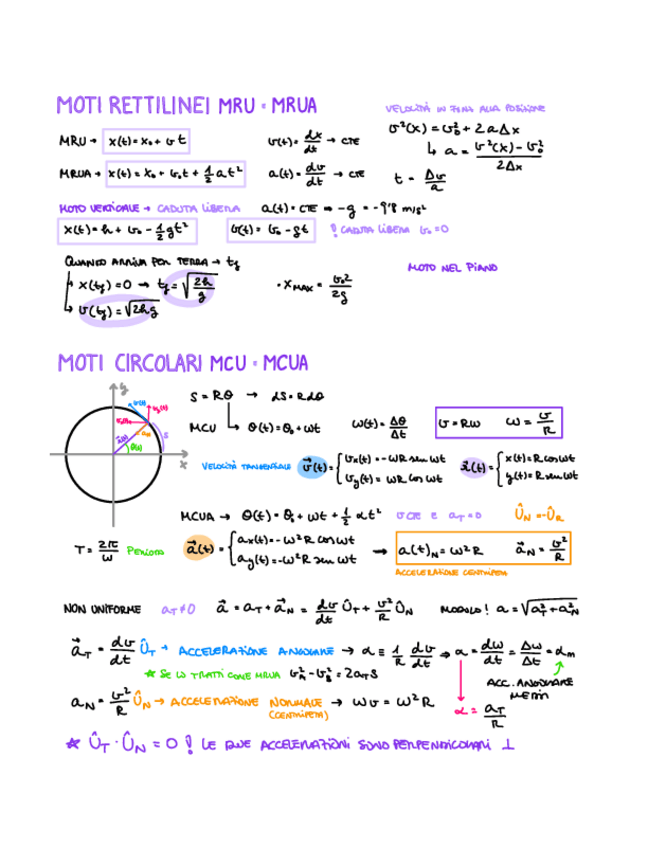 MOTI RETTILINEI MRU = MRUA
VELOCITÀ IN FUNZ ALLA POSIZIONE
MRU → x(t) = x₀ + v t
v(t) = dx/dt → CTE
v²(x) = v₀² + 2aΔx
↳ a = (v²(x) - v₀²)/2Δx
MRUA → x(t) = x₀ + v₀t + 1/2 at²
a(t) = dv/dt → CTE
t = Δv/a
MOTO VERTICALE → CADUTA LIBERA
a(t) = CTE ⇒ -g = -9'8 m/s²
x(t) = h + v₀ - 1/2 gt²
v(t) = v₀ - gt
! CADUTA LIBERA v₀ = 0
QUANDO ARRIVA PER TERRA → tf
MOTO NEL PIANO
↳ x(tf) = 0 → tf = √(2h/g)
· XMAX = v₀²/2g
↳ v(tf) = √2hg
MOTI CIRCOLARI MCU = MCUA
y
x
S
θ(t)
S = Rθ → dS = Rdθ
MCU ↳ θ(t) = θ₀ + ωt
ω(t) = Δθ/Δt
v = Rω
ω = v/R
VELOCITÀ TANGENZIALE v⃗(t) = { vx(t) = -ωR sen ωt
vy(t) = ωR cos ωt
r⃗(t) = { x(t) = R cos ωt
y(t) = R sen ωt
MCUA → θ(t) = θ₀ + ωt + 1/2 αt²
v CTE E aT = 0
ÛN = -ÛR
T = 2π/ω PERIODO
a⃗(t) = { ax(t) = -ω²R cos ωt
ay(t) = -ω²R sen ωt
→ a(t)N = ω²R
a⃗N = v²/R
ACCELERAZIONE CENTRIPETA
NON UNIFORME aT ≠ 0 a⃗ = aT + a⃗N = dv/dt ÛT + v²/R ÛN
MODULO! a = √(aT² + aN²)
a⃗T = dv/dt ÛT → ACCELERAZIONE ANGOLARE → α ≡ 1/R dv/dt → α = dω/dt = Δω/Δt = αm
★ SE LO TRATTI COME MRUA vA² - vB² = 2aTS
ACC. ANGOLARE MEDIA
aN = v²/R ÛN → ACCELERAZIONE NORMALE (CENTRIPETA) → ωv = ω²R
α = aT/R
★ ÛT · ÛN = 0 ! LE DUE ACCELERAZIONI SONO PERPENDICOLARI ⊥